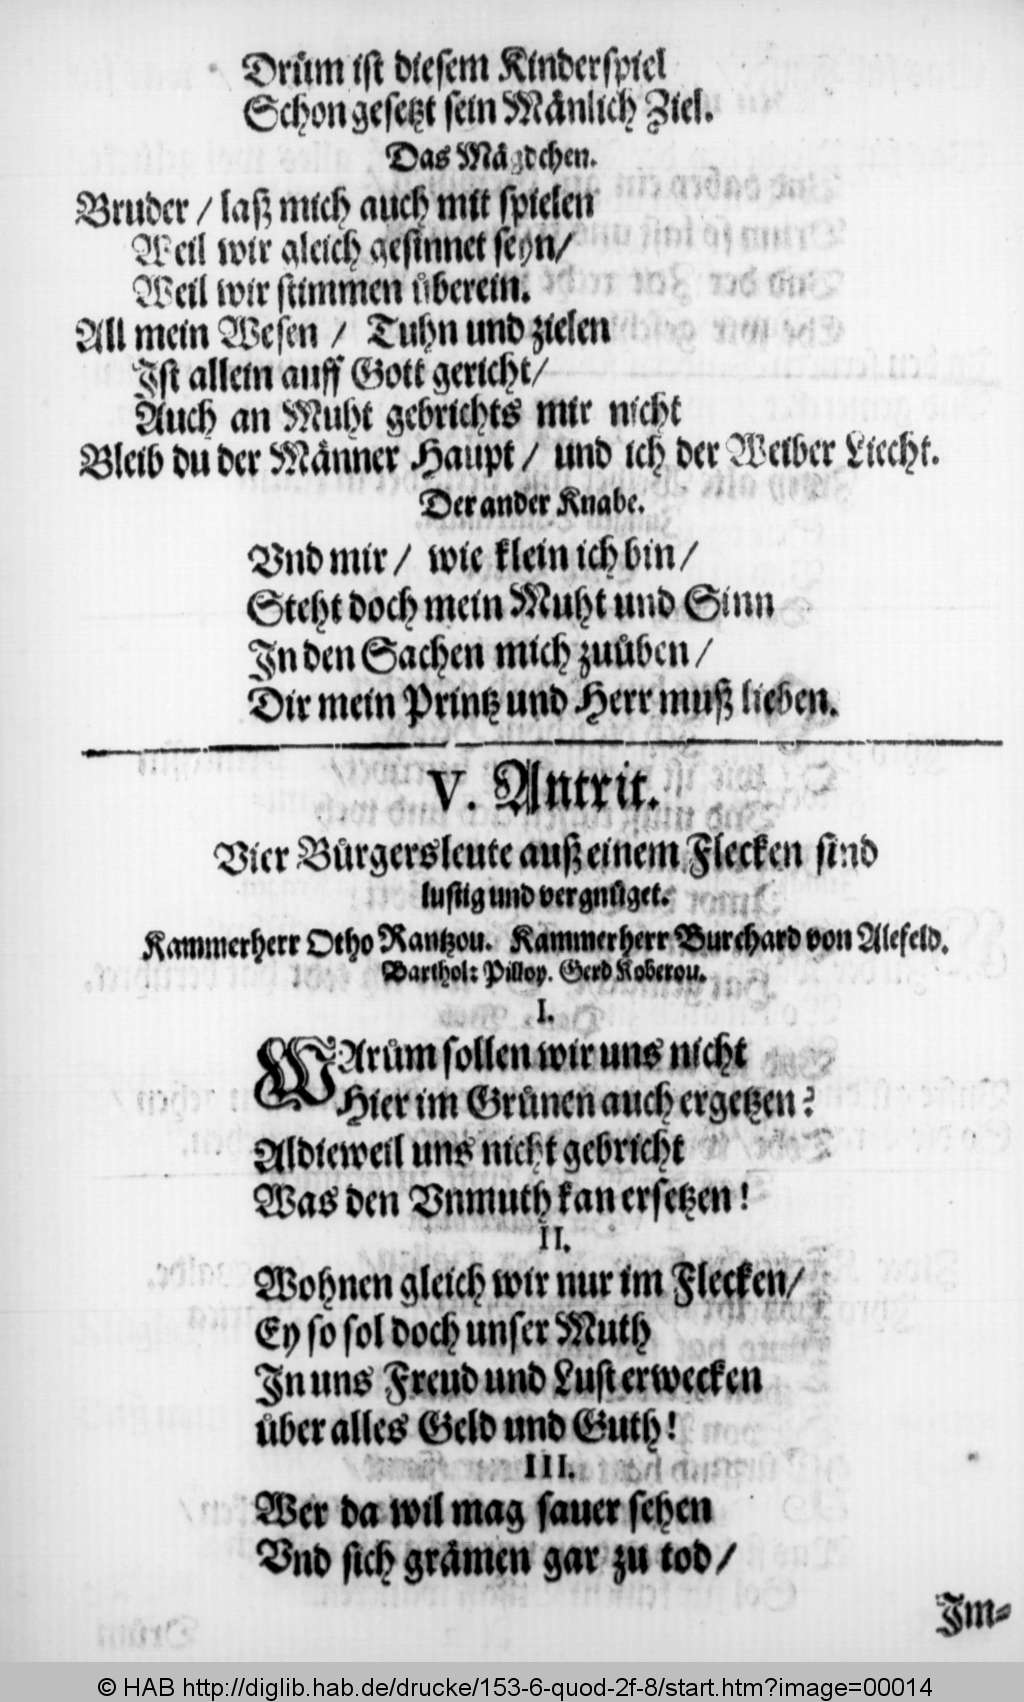 Drům ist diesem Kinderspiel
Schon gesetzt sein Mänlich Ziel.
Das Mägdchen.
Bruder / laß mich auch mit spielen
Weil wir gleich gesinnet seyn/
Weil wir stimmen ůberein.
All mein Wesen / Tuhn und zielen
Ist allein auff Gott gericht/
Auch an Muht gebrichts mir nicht
Bleib du der Männer Haupt / und ich der Weiber Liecht.
Der ander Knabe.
Vnd mir / wie klein ich bin /
Steht doch mein Muht und Sinn
In den Sachen mich zuůben /
Dir mein Printz und Herr muß lieben.
V. Antrit.
Vier Bůrgersleute auß einem Flecken sind
lustig und vergnůget.
Kammerherr Otho Rantzou. Kammerherr Burchard von Alefeld.
Barthol: Pilloy. Gerd Koberou.
I.
WArům sollen wir uns nicht
Hier im Grůnen auch ergetzen?
Aldieweil uns nicht gebricht
Was den Vnmuth kan ersetzen!
II.
Wohnen gleich wir nur im Flecken/
Ey so sol doch unser Muth
In uns Freud und Lust erwecken
ůber alles Geld und Guth!
III.
Wer da wil mag sauer sehen
Vnd sich grämen gar zu tod /
Im=
© HAB http://diglib.hab.de/drucke/153-6-quod-2f-8/start.htm?image=00014